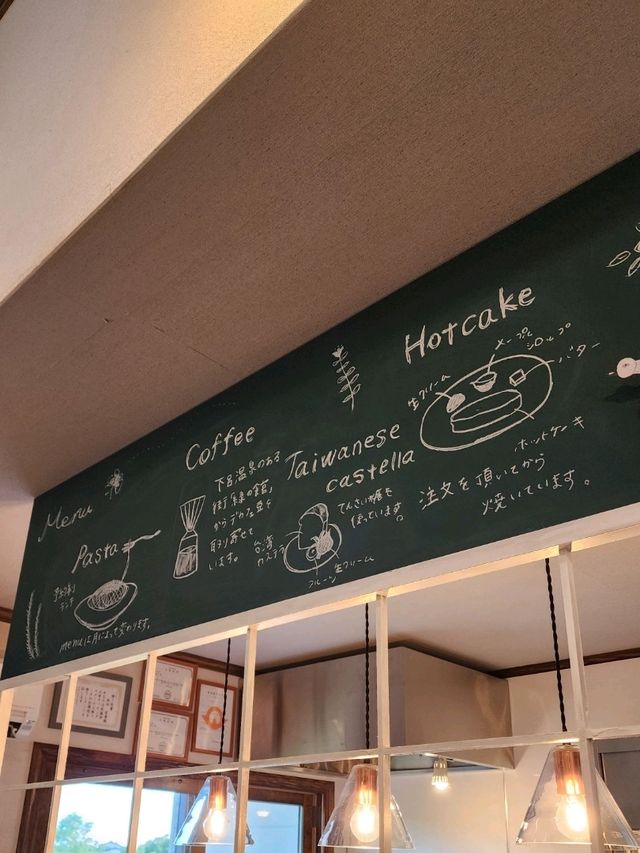 Menu
Pasta
ランチ
menuは月によって変わります。
Coffee
下呂温泉のある
街「緑の館」
から
取り寄せて
います。
Taiwanese
castella
てんさい糖を
使っています。
台湾
カステラ
生クリーム
Hotcake
生クリーム
メープル
シロップ
バター
ホットケーキ
注文を頂いてから
焼いています。